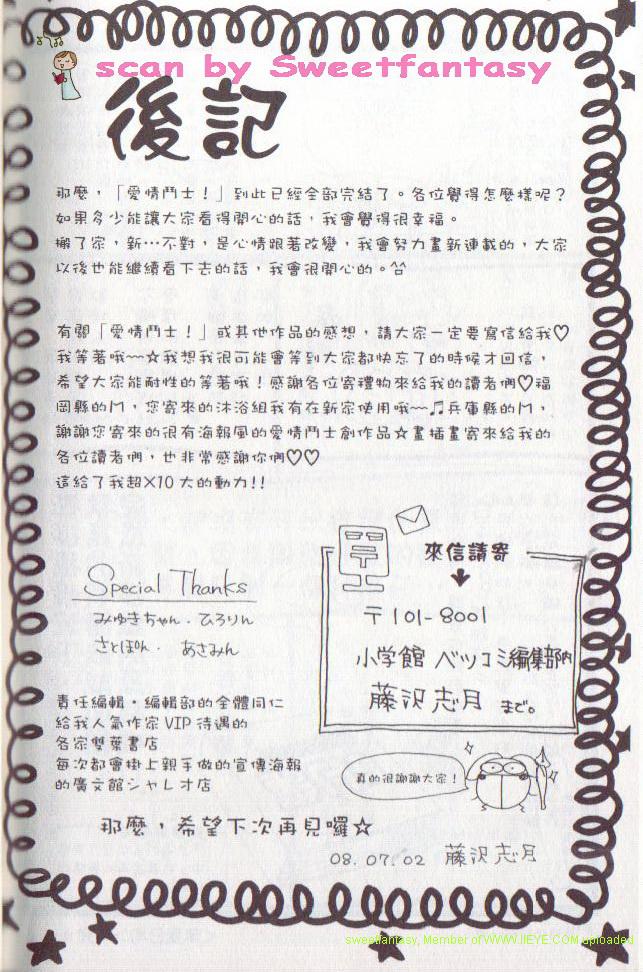 scan by Sweetfantasy
後記
那麼，「愛情鬥士！」到此已經全部完結了。各位覺得怎麼樣呢？
如果多少能讓大家看得開心的話，我會覺得很幸福。
搬了家，新…不對，是心情跟著改變，我會努力畫新連載的，大家
以後也能繼續看下去的話，我會很開心的。^^
有關「愛情鬥士！」或其他作品的感想，請大家一定要寫信給我♡
我等著哦~~☆我想我很可能會等到大家都快忘了的時候才回信，
希望大家能耐性的等著哦！感謝各位寄禮物來給我的讀者們♡福
岡縣的M，您寄來的沐浴組我有在新家使用哦~~♫兵庫縣的M，
謝謝您寄來的很有海報風的愛情鬥士創作品☆畫插畫寄來給我的
各位讀者們，也非常感謝你們♡♡
這給了我超X10大的動力!!
來信請寄
〒101-8001
小学館 ベツコミ編集部内
藤沢志月 まで。
Special Thanks
みゆきちゃん・ひろりん
さとぽん・ あさみん
責任編輯・編輯部的全體同仁
給我人氣作家VIP待遇的
各家雙葉書店
每次都會掛上親手做的宣傳海報
的廣文館シャレオ店
真的很謝謝大家！
那麼，希望下次再見囉☆
08.07.02 藤沢志月
sweetfantasy, Member of WWW.JIEYE.COM uploaded